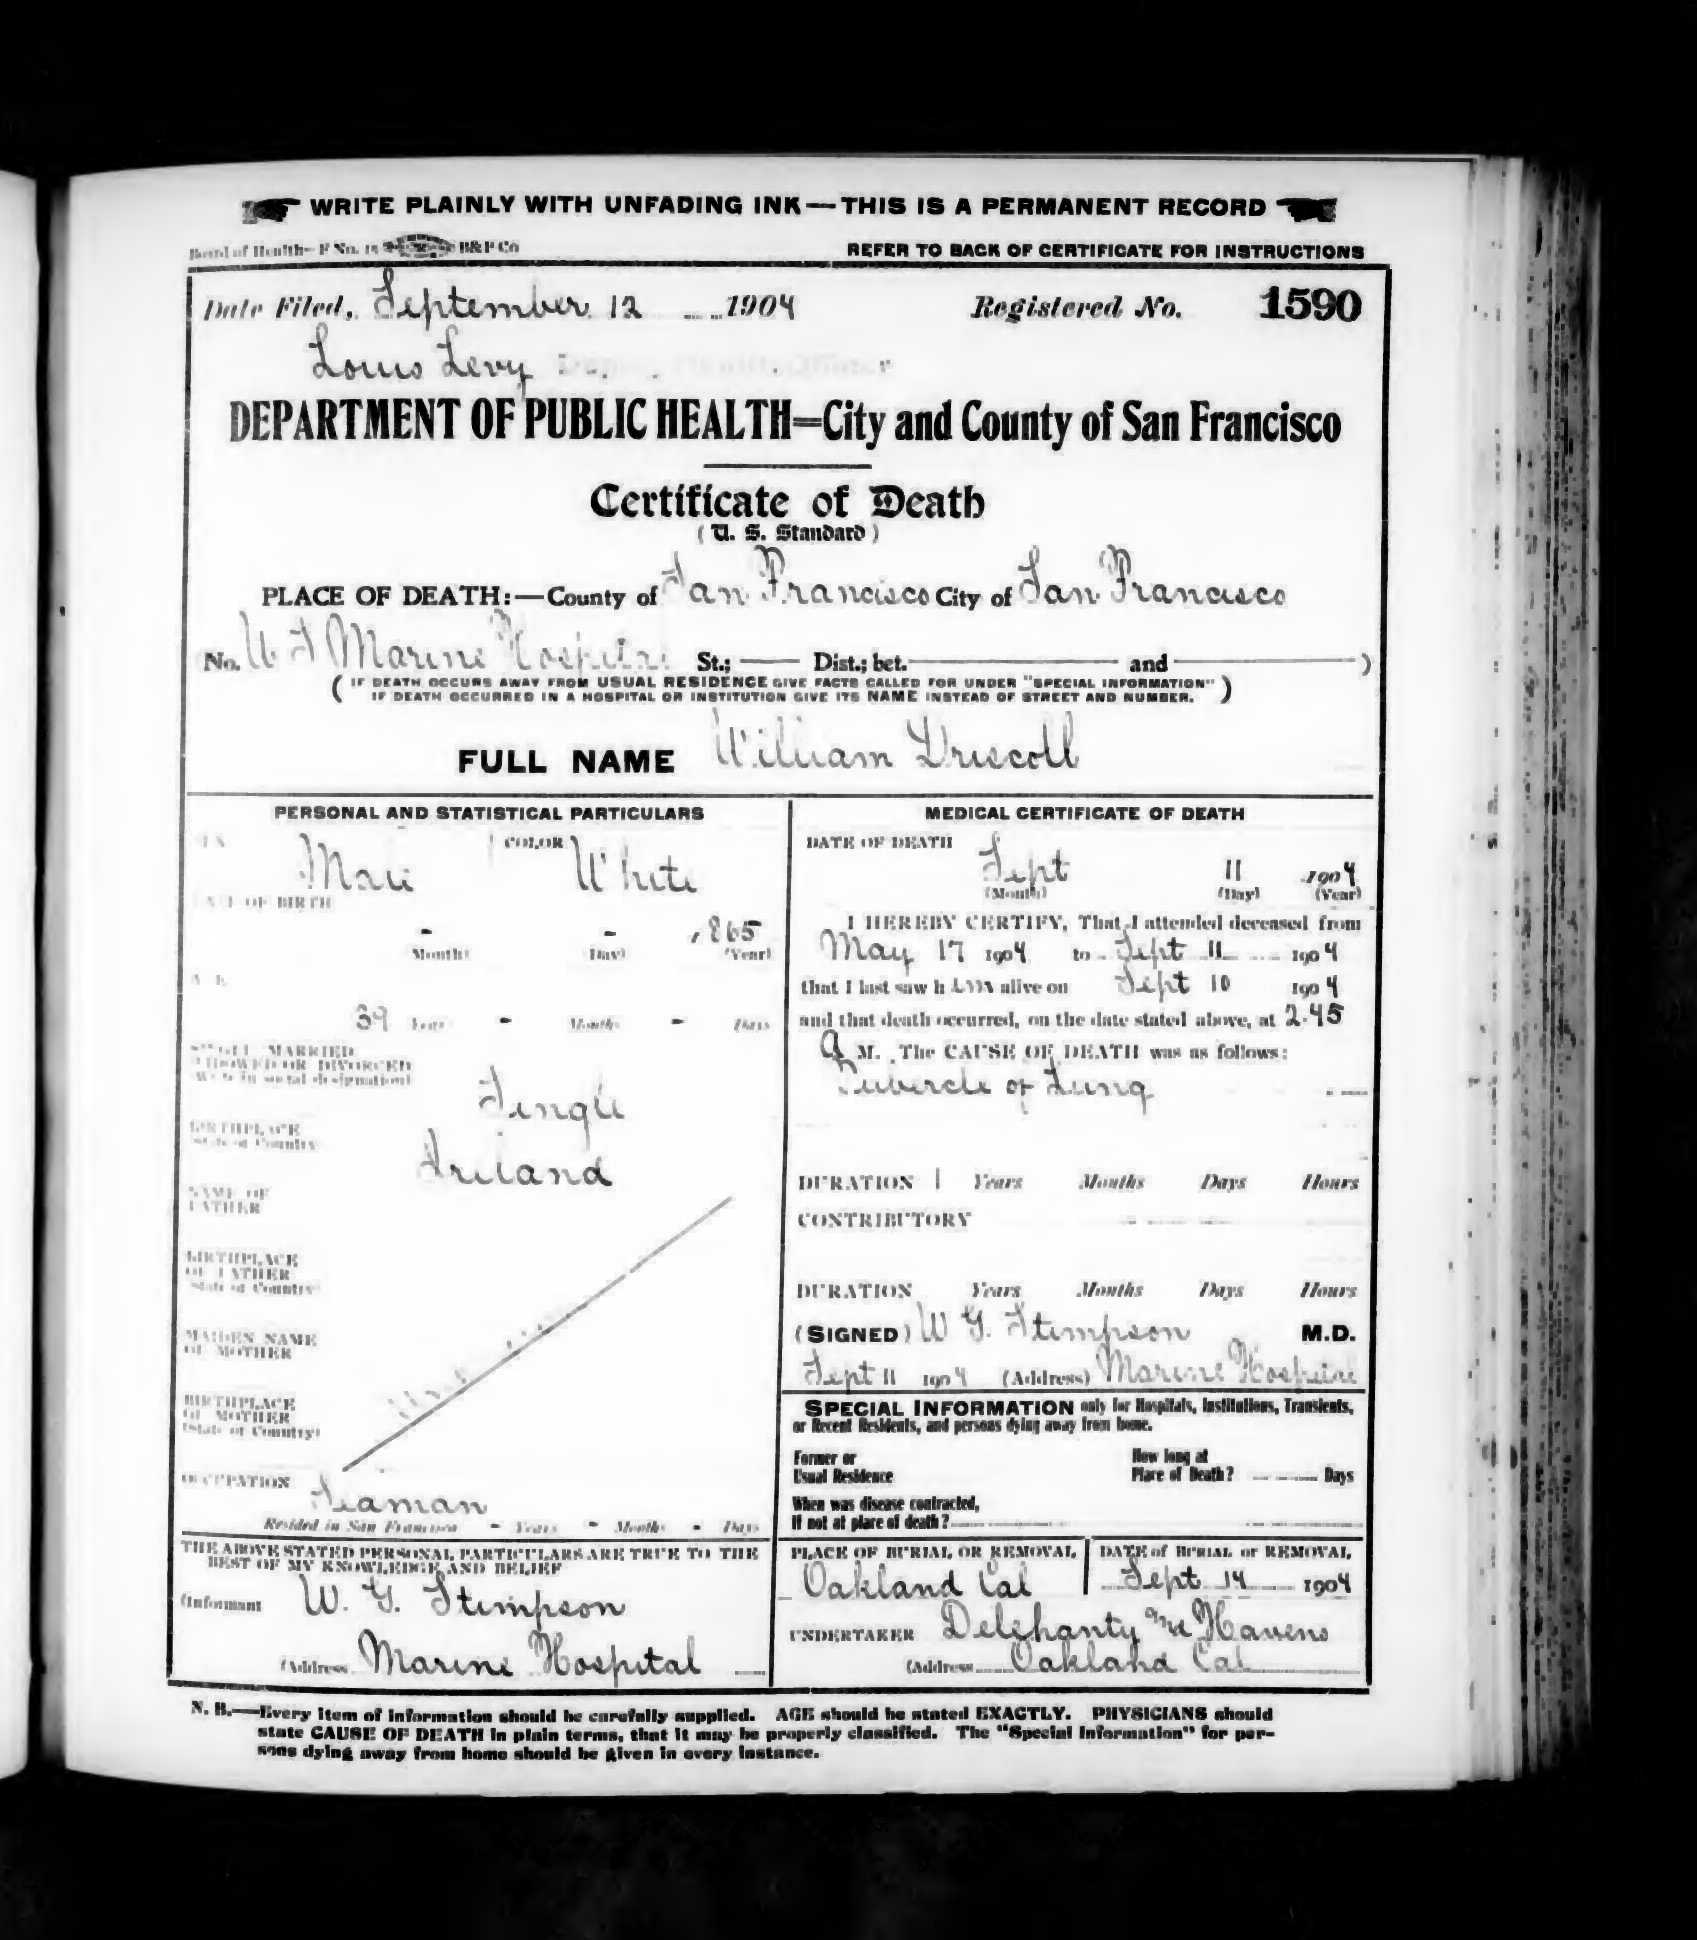 WRITE PLAINLY WITH UNFADING INK—THIS IS A PERMANENT RECORD
Board of Health—F No. 18 B&P Co REFER TO BACK OF CERTIFICATE FOR INSTRUCTIONS
Date Filed, September 12 1904 Registered No. 1590
Louis Levy
DEPARTMENT OF PUBLIC HEALTH=City and County of San Francisco
Certificate of Death
(U. S. Standard)
PLACE OF DEATH:—County of San Francisco City of San Francisco
(No. U S Marine Hospital St.; — Dist.; bet. — and — )
(IF DEATH OCCURS AWAY FROM USUAL RESIDENCE GIVE FACTS CALLED FOR UNDER "SPECIAL INFORMATION"
IF DEATH OCCURRED IN A HOSPITAL OR INSTITUTION GIVE ITS NAME INSTEAD OF STREET AND NUMBER.)
FULL NAME William Driscoll
PERSONAL AND STATISTICAL PARTICULARS
SEX Male COLOR White
DATE OF BIRTH
- - 1865
(Month) (Day) (Year)
AGE
39 Years - Months - Days
SINGLE MARRIED
WIDOWED OR DIVORCED
(Write in social designation)
Single
BIRTHPLACE
(State or Country)
Ireland
NAME OF
FATHER
BIRTHPLACE
OF FATHER
(State or Country)
MAIDEN NAME
OF MOTHER
BIRTHPLACE
OF MOTHER
(State or Country)
OCCUPATION
Seaman
Resided in San Francisco - Years - Months - Days
THE ABOVE STATED PERSONAL PARTICULARS ARE TRUE TO THE
BEST OF MY KNOWLEDGE AND BELIEF
(Informant W. G. Stimpson
(Address Marine Hospital
MEDICAL CERTIFICATE OF DEATH
DATE OF DEATH
Sept 11 1904
(Month) (Day) (Year)
I HEREBY CERTIFY, That I attended deceased from
May 17 1904 to Sept 11 1904
that I last saw h im alive on Sept 10 1904
and that death occurred, on the date stated above, at 2.45
A M. The CAUSE OF DEATH was as follows:
Tubercle of Lung
DURATION 1 Years Months Days Hours
CONTRIBUTORY
DURATION Years Months Days Hours
(SIGNED) W G. Stimpson M.D.
Sept 11 1904 (Address) Marine Hospital
SPECIAL INFORMATION only for Hospitals, Institutions, Transients,
or Recent Residents, and persons dying away from home.
Former or
Usual Residence
How long at
Place of Death? Days
When was disease contracted,
If not at place of death?
PLACE OF BURIAL OR REMOVAL
Oakland Cal
DATE of BURIAL or REMOVAL
Sept 14 1904
UNDERTAKER Delehanty Havens
(Address Oakland Cal
N. B.—Every item of information should be carefully supplied. AGE should be stated EXACTLY. PHYSICIANS should
state CAUSE OF DEATH in plain terms, that it may be properly classified. The "Special Information" for per-
sons dying away from home should be given in every instance.